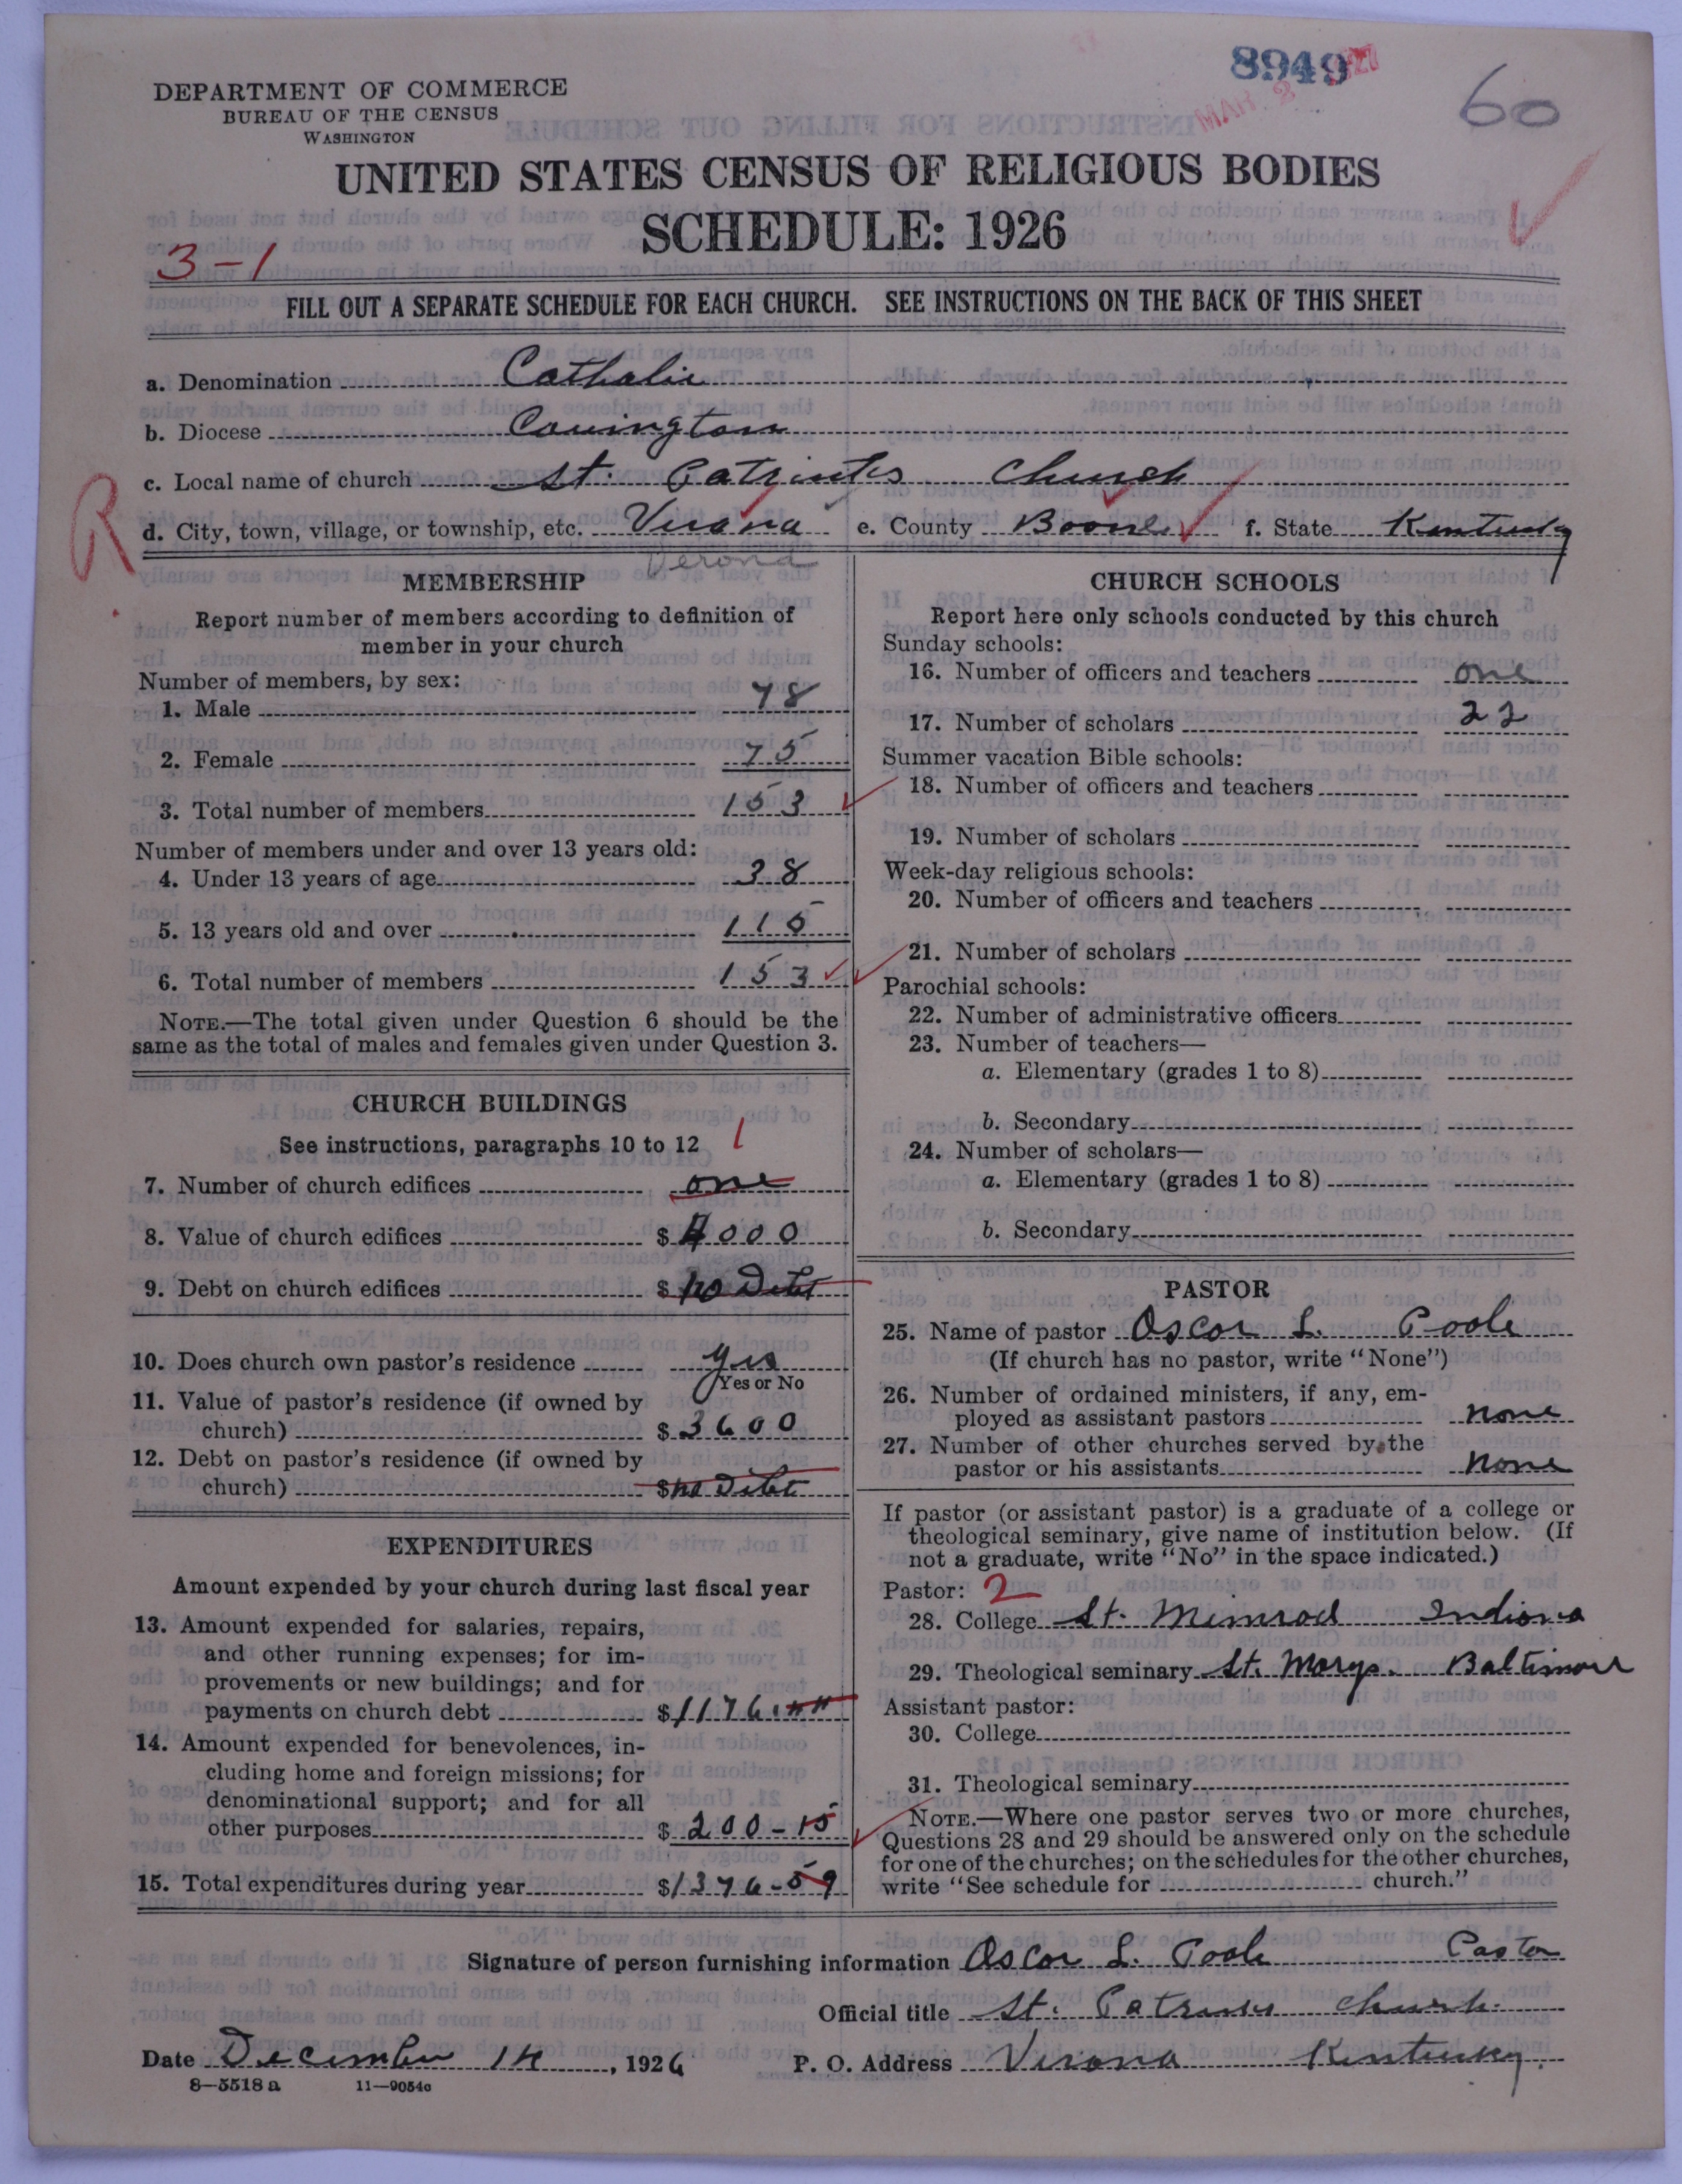 8949
MAR. 2 1927
60
DEPARTMENT OF COMMERCE
BUREAU OF THE CENSUS
WASHINGTON
UNITED STATES CENSUS OF RELIGIOUS BODIES
SCHEDULE: 1926
3-1
FILL OUT A SEPARATE SCHEDULE FOR EACH CHURCH. SEE INSTRUCTIONS ON THE BACK OF THIS SHEET
a. Denomination Catholic
b. Diocese Covington
R
c. Local name of church St. Patrick's Church
d. City, town, village, or township, etc. Verona e. County Boone f. State Kentucky
Verona
MEMBERSHIP
Report number of members according to definition of
member in your church
Number of members, by sex:
1. Male 78
2. Female 75
3. Total number of members 153
Number of members under and over 13 years old:
4. Under 13 years of age 38
5. 13 years old and over 115
6. Total number of members 153
NOTE.—The total given under Question 6 should be the
same as the total of males and females given under Question 3.
CHURCH BUILDINGS
See instructions, paragraphs 10 to 12
1
7. Number of church edifices one
8. Value of church edifices $ 4000
9. Debt on church edifices $ no Debt
10. Does church own pastor's residence yes
Yes or No
11. Value of pastor's residence (if owned by
church) $ 3600
12. Debt on pastor's residence (if owned by
church) $ no Debt
EXPENDITURES
Amount expended by your church during last fiscal year
13. Amount expended for salaries, repairs,
and other running expenses; for im-
provements or new buildings; and for
payments on church debt $ 1176.44
14. Amount expended for benevolences, in-
cluding home and foreign missions; for
denominational support; and for all
other purposes $ 200-15
15. Total expenditures during year $ 1376-59
CHURCH SCHOOLS
Report here only schools conducted by this church
Sunday schools:
16. Number of officers and teachers one
17. Number of scholars 22
Summer vacation Bible schools:
18. Number of officers and teachers
19. Number of scholars
Week-day religious schools:
20. Number of officers and teachers
21. Number of scholars
Parochial schools:
22. Number of administrative officers
23. Number of teachers—
a. Elementary (grades 1 to 8)
b. Secondary
24. Number of scholars—
a. Elementary (grades 1 to 8)
b. Secondary
PASTOR
25. Name of pastor Oscar L. Poole
(If church has no pastor, write "None")
26. Number of ordained ministers, if any, em-
ployed as assistant pastors none
27. Number of other churches served by the
pastor or his assistants none
If pastor (or assistant pastor) is a graduate of a college or
theological seminary, give name of institution below. (If
not a graduate, write "No" in the space indicated.)
Pastor: 2
28. College St. Meinrad Indiana
29. Theological seminary St. Marys. Baltimore
Assistant pastor:
30. College
31. Theological seminary
NOTE.—Where one pastor serves two or more churches,
Questions 28 and 29 should be answered only on the schedule
for one of the churches; on the schedules for the other churches,
write "See schedule for church."
Signature of person furnishing information Oscar L. Poole Pastor
Official title St. Patricks church.
Date December 14, 1926 P. O. Address Verona Kentucky.
8—5518 a 11—9054c